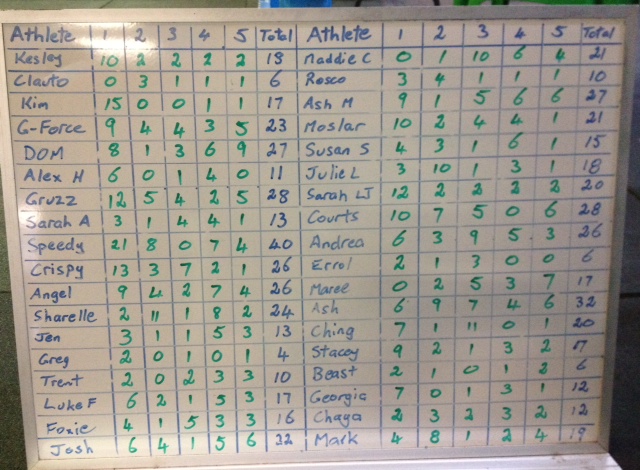 Athlete 1 2 3 4 5 Total Athlete 1 2 3 4 5 Total
Kesley 10 2 2 2 2 18 Maddie C 0 1 10 6 4 21
Clauto 0 3 1 1 1 6 Rosco 3 4 1 1 1 10
Kim 15 0 0 1 1 17 Ash M 9 1 5 6 6 27
G-Force 9 4 4 3 5 23 Moslar 10 2 4 4 1 21
DOM 8 1 3 6 9 27 Susan S 4 3 1 6 1 15
Alex H 6 0 1 4 0 11 Julie L 3 10 1 3 1 18
Gruzz 12 5 4 2 5 28 Sarah LJ 12 2 2 2 2 20
Sarah A 3 1 4 4 1 13 Courts 10 7 5 0 6 28
Speedy 21 8 0 7 4 40 Andrea 6 3 9 5 3 26
Crispy 13 3 7 2 1 26 Errol 2 1 3 0 0 6
Angel 9 4 2 7 4 26 Maree 0 2 5 3 7 17
Sharelle 2 11 1 8 2 24 Ash 6 9 7 4 6 32
Jen 3 1 1 5 3 13 Ching 7 1 11 0 1 20
Greg 2 0 1 0 1 4 Stacey 9 2 1 3 2 17
Trent 2 0 2 3 3 10 Beast 2 1 0 1 2 6
Luke F 6 2 1 5 3 17 Georgia 7 0 1 3 1 12
Foxie 4 1 5 3 3 16 Chaya 2 3 2 3 2 12
Josh 6 4 1 5 6 22 Mark 4 8 1 2 4 19